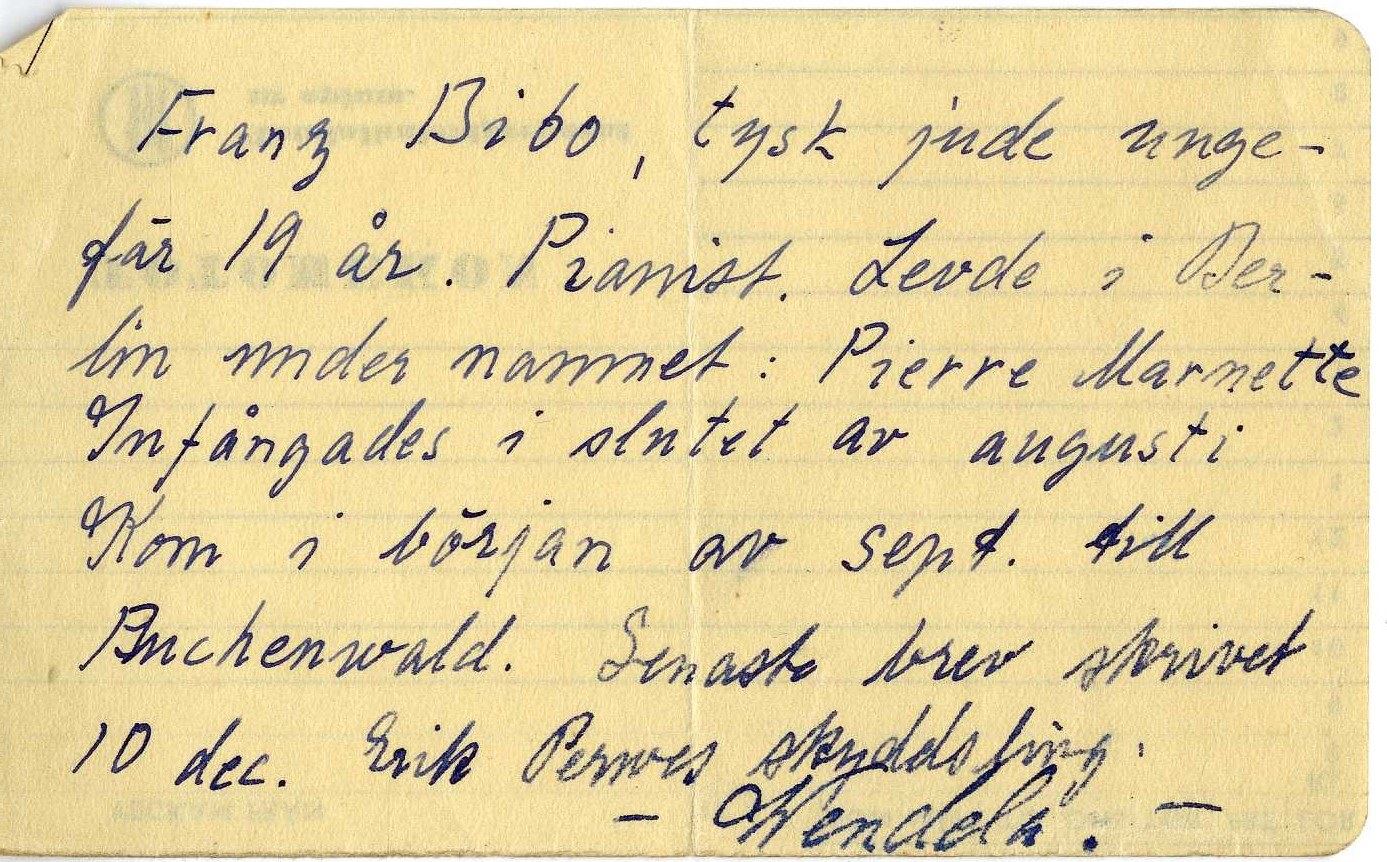 Franz Bibo, tysk jude unge-
fär 19 år. Pianist. Levde i Ber-
lin under namnet: Pierre Marnette
Infångades i slutet av augusti
Kom i början av sept. till
Buchenwald. Senaste brev skrivet
10 dec. Erik Perwes skyddsling.
– Wendela. –